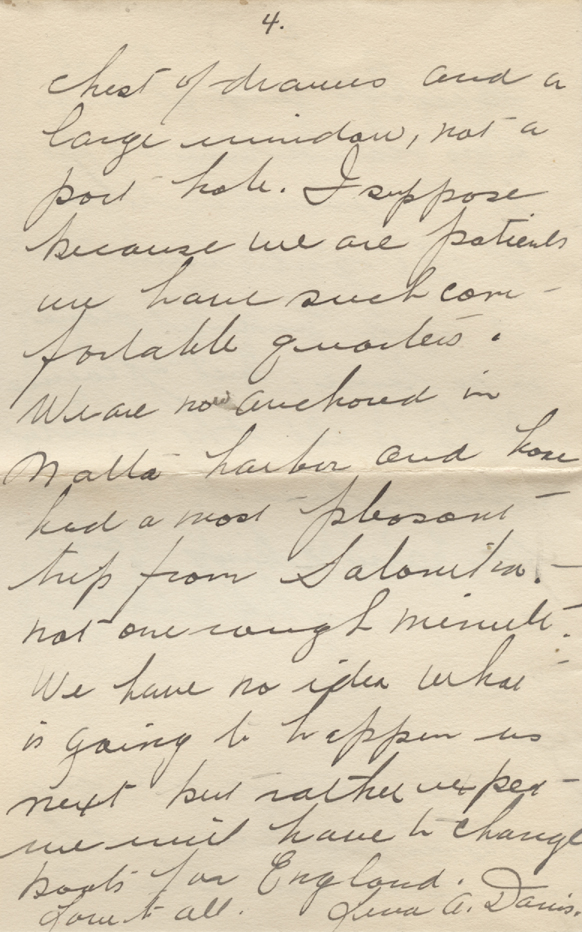 4.
chest of drawers and a
large window, not a
port hole. I suppose
because we are patients
we have such com-
fortable quarters.
We are now anchored in
Malta harbor and have
had a most pleasant
trip from Salonika. -
not one rough minute.
We have no idea what
is going to happen us
next but rather expect
we will have to change
boats for England.
Love to all. Leva A. Davis.